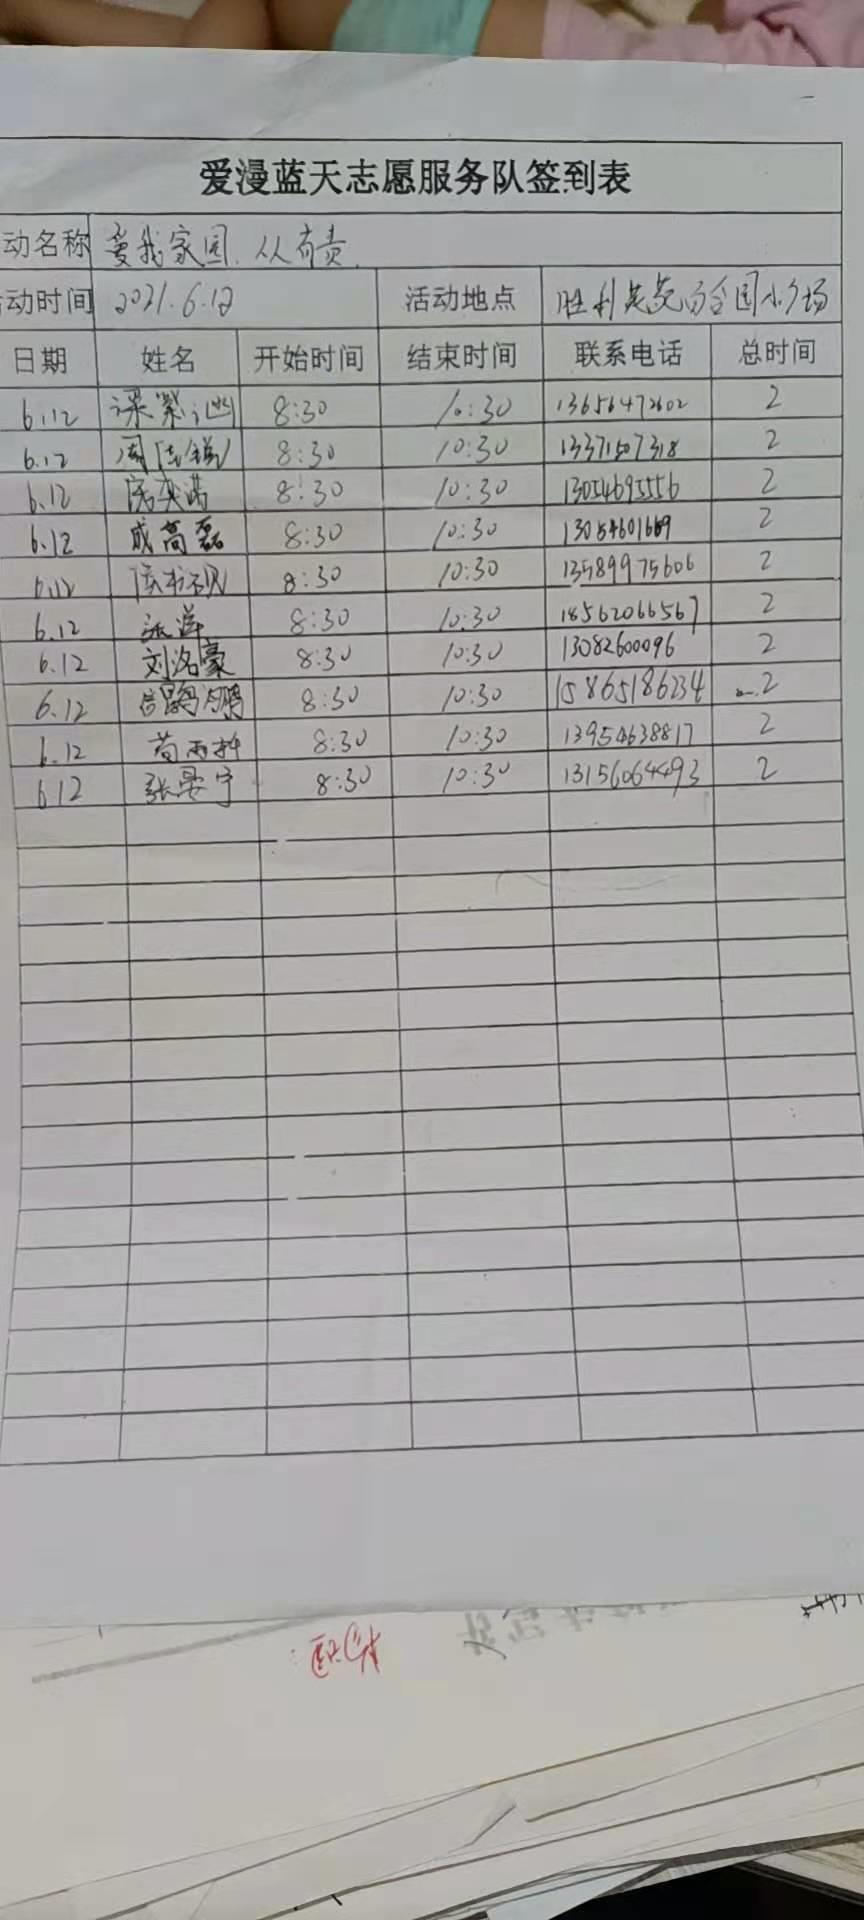 爱漫蓝天志愿服务队签到表
动名称 爱我家园.人人有责
动时间 2021.6.12 活动地点 胜利 百合园小广场
日期 姓名 开始时间 结束时间 联系电话 总时间
6.12 梁紫 8:30 10:30 13656472602 2
6.12 周 8:30 10:30 13371507318 2
6.12 8:30 10:30 13054695556 2
6.12 成高磊 8:30 10:30 2
6.12 8:30 10:30 13589975606 2
6.12 张洋 8:30 10:30 18562066567 2
6.12 刘洺豪 8:30 10:30 13082600096 2
6.12 8:30 10:30 15865186234 2
6.12 苟雨 8:30 10:30 13954638817 2
6.12 张晏宇 8:30 10:30 13156064493 2